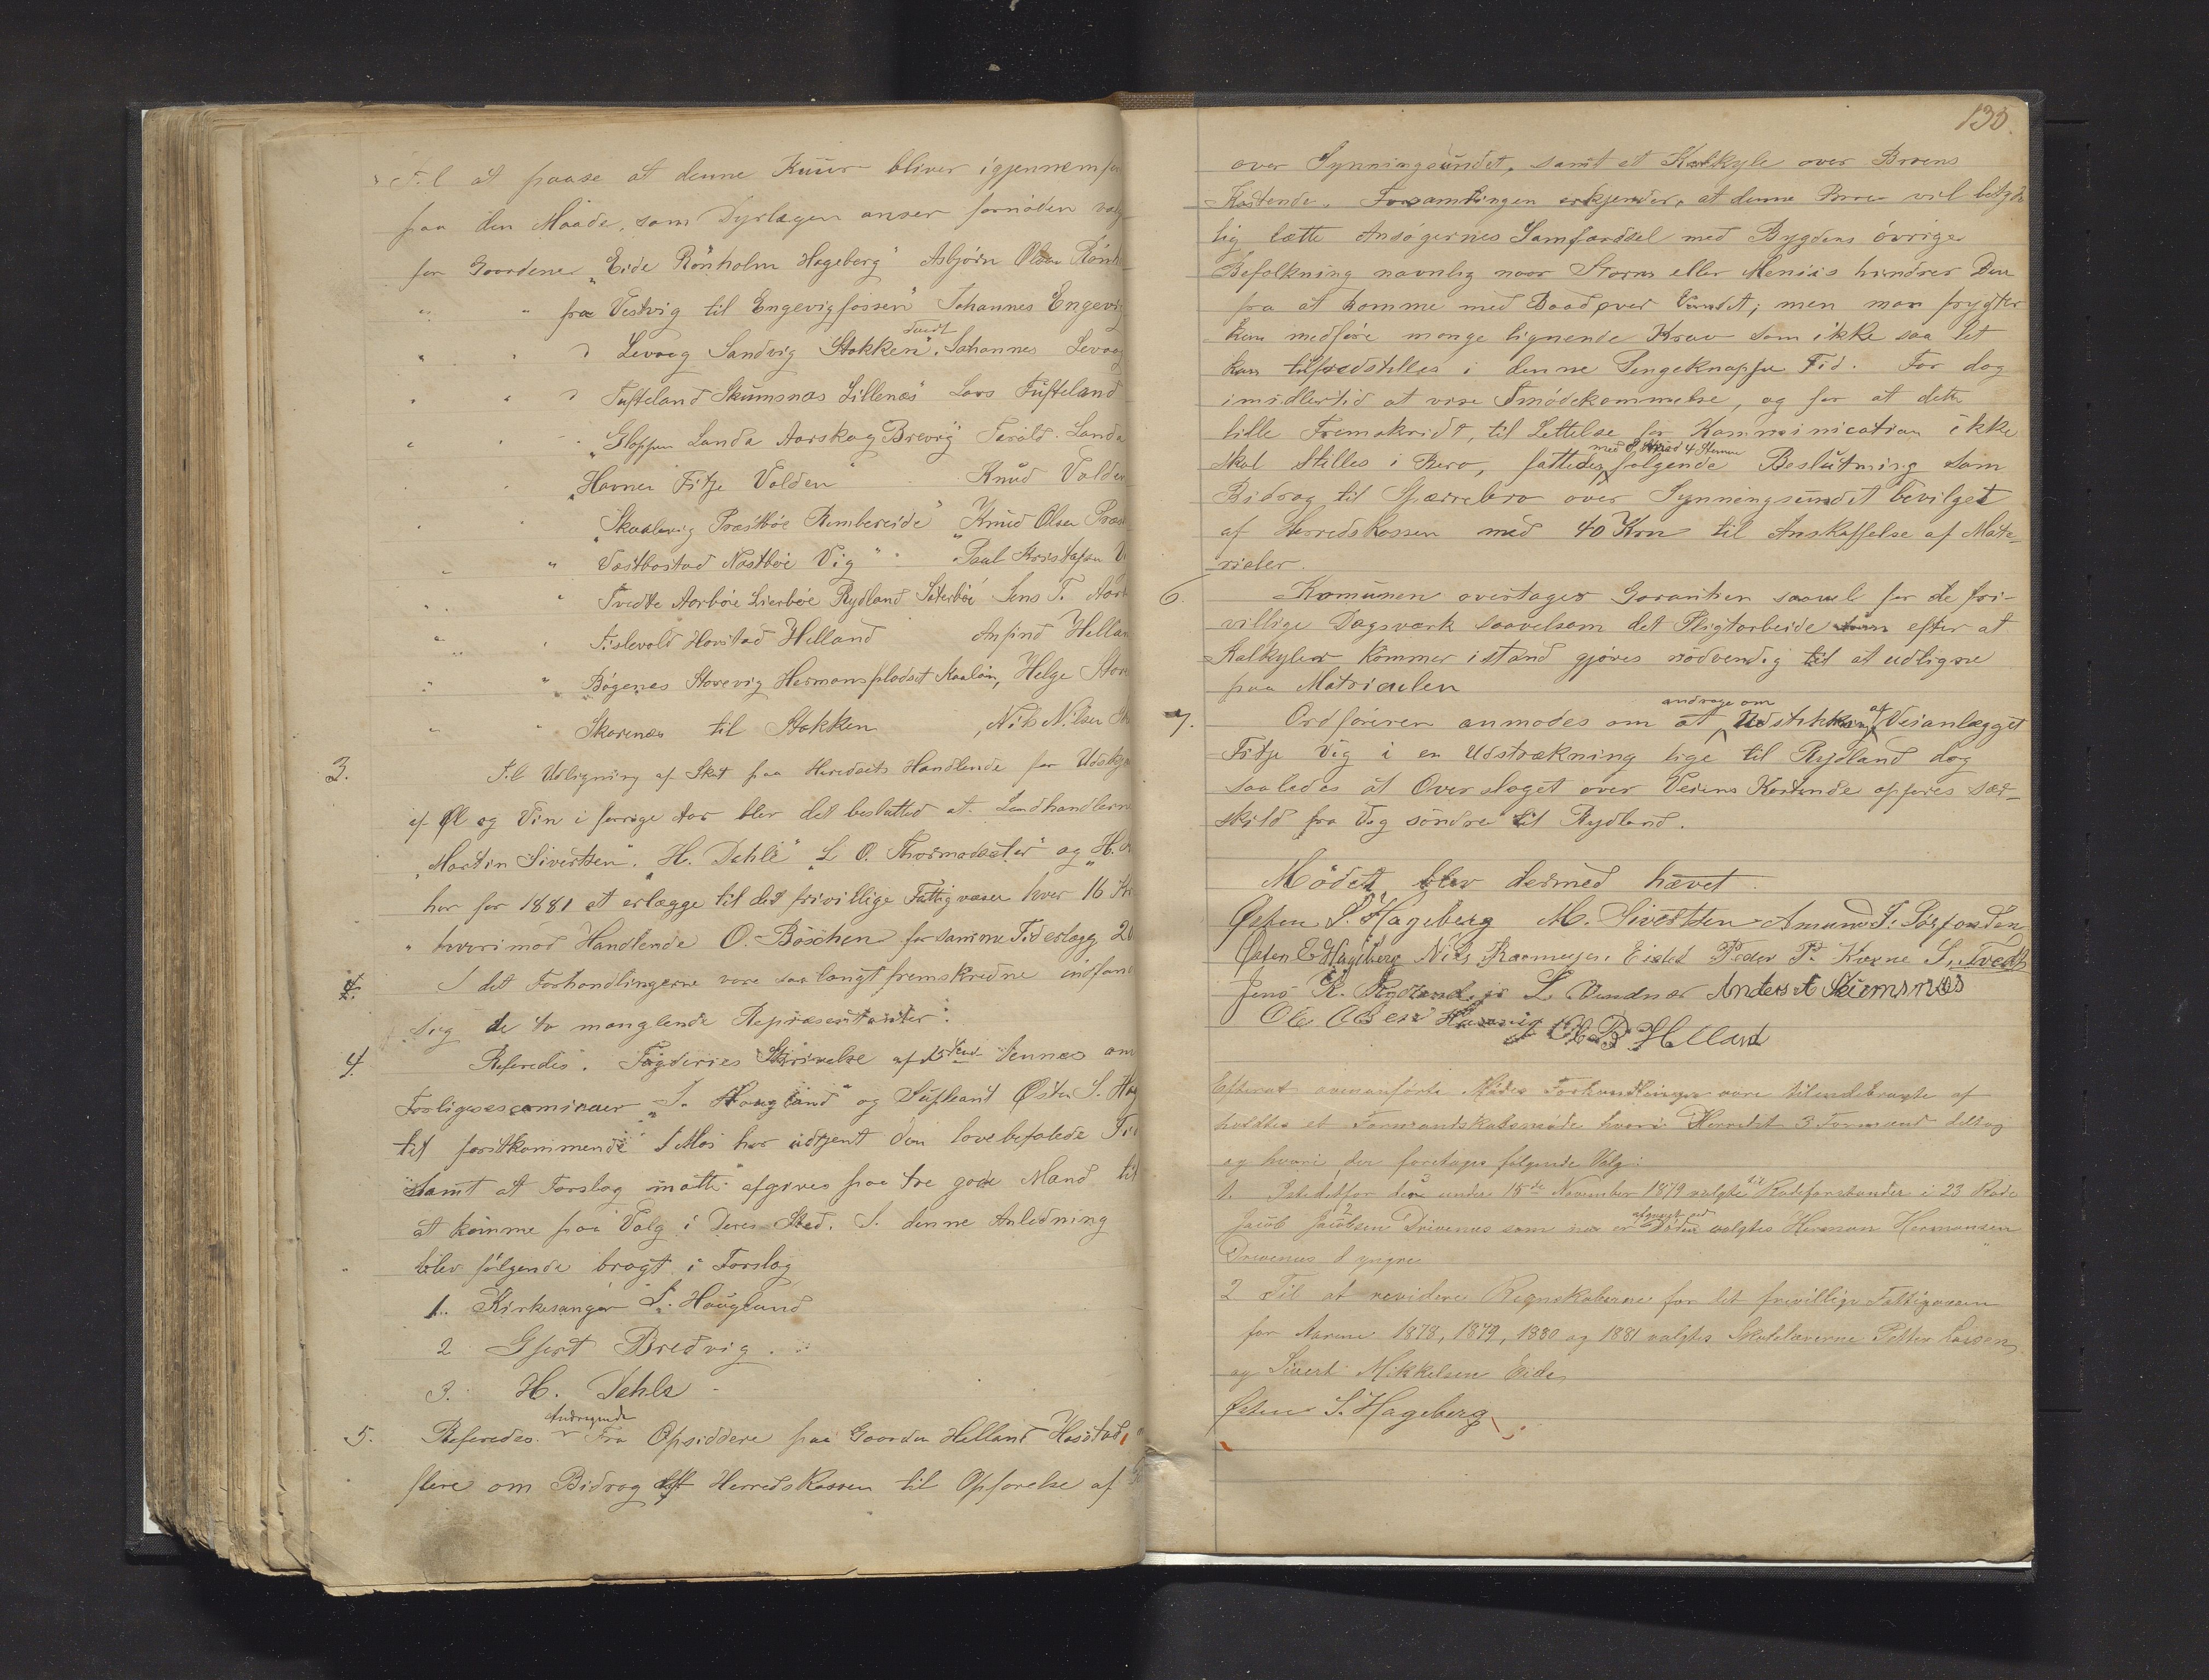 Til at paase at denne Kuur bliver igjennemfør
paa den Maade, som Dyrlægen anser fornöden valg
for Gaardene „Eide Rönholm Hageberg" Asbjørn Olsen Rönh
" " fra Vestvig til Engevigfossen" Johannes Engevig
" " " Levaag Sandvig Stokken" Johannes Levaag
" " " Tufteland Skumsnæs Lillenæs" Lars Tufteland
" " „Gloppen Landa Aarskog Brevig" Torald Landa
" „Havnen Fitje Valden" Knud Valden
" „Skaalevig Præstbøe Rimbereide" Knud Olsen Præst
" " Vestbostad Nestbøe Vig " " Paul Kristofsen V
" " Tvedte Aarbøe Lierbøe Rydland Sæterbøe Jens T. Aarb
" " Tislevold Horstad Helland Anfind Hellan
" " Bögenes Storevig Hermanspladset Kaalön, Helge Stor
" " Skarenæs til Stokken, Nils Nilsen
3. Til Udligning af Skat paa Heredets Handlende for Udskj
af Øl og Vin i forrige Aar blev det besluttet at Landhandlerne
„Martin Sivertsen" „H. Dahle" „L O. Thormodsæter" og „H.
har for 1881 at erlægge til det frivillige Fattigvæsen hver 16 Kr
" hvorimod Handlende O. Böschen for samme Tid erlægg 20
I det Forhandlingerne vare saa langt fremskredne indfand
sig de to manglende Repræsentanter.
4. Referedes. Fogderies Skrivelse af 15de Jennes om
Forligescomisær „I. Haugland" og Supleant Østen S. Hag
til førstkommende 1 Mai har udtjent den lovbefalede Ti
samt at Forslag matte afgives paa tre gode Mænd til
at komme paa Valg i Deres Sted. I denne Anledning
blev følgende bragt i Forslag
1. Kirkesanger I. Haugland
2 Gjert Bredvig.
3. H. Dahle
Andragende
5. Referedes. Fra Opsiddere paa Gaarden Helland Horstad,
flere om Bidrag af Herredskassen til Opførelse af
130.
over Synningsundet, samt et Kalkyle over Broens
Kostende. Forsamlingen erkjender, at denne Bro vil betyde
lig lætte Ansögernes Samfærdsel med Bygdens övrige
Befolkning navnlig naar Storm eller Meniis hindrer Den
fra at komme med Baad over Vandet; men man frygter
kan medföre mange lignende Krav som ikke saa let
kan tilfredstilles i denne Pengeknappe Tid. For dog
imidlertid at vise Imødekommelse, og for at dette
lille Fremskridt, til Lettelse for Kommunication ikke
med 8 mod 4 Stemmer
skal stilles i Bero, fattedes følgende Beslutning som
Bidrag til Sperrebro over Synningsundet bevilget
af Herredskassen med 40 Krn til Anskaffelse af Mate-
rialer.
6. Komunen overtager Garantien saavel for de fri-
villige Dagsværk saavelsom det Pligtarbeide efter at
Kalkyler kommer istand gjöres nödvendig til at udligne
paa Matriculen
andrage om af
7. Ordföreren anmodes om at Udstikking Veianlægget
Fitje Vig i en Udstrækning lige til Rydland dog
saaledes at Overslaget over Veiens Kostende opføres sær-
skild fra Vig söndre til Rydland.
Mödet blev dermed hævet.
Østen S. Hageberg M. Sivertsen Amund T.
Østen E Hageberg Nils Rasmusen Eide Peder P. Korne S. Tvedt
Jens R. Rydland L. Vendnæs Anders A Skumsnes
Ole Olsen Havnvig Ole B. Helland
Efterat ovenanförte Mödes Forhandlinger vare tilendebragte af
holdtes et Formandskabsmöde hvori Herredet 3 Formænd deltog
og hvori der foretoges følgende Valg:
1. Istedetfor den under 15de November 1879 valgte til Rodeforstander i 23 Rode
afgaaet ved
Jacob Jacobsen Drivenes som nu er Döden valgtes Herman Hermansen
Drivenes d yngre
2 Til at revidere Regnskaberne for det frivillige Fattigvæsen
for Aarene 1878, 1879, 1880 og 1881 valgtes Skolelærerne Petter Larsen
og Sivert Mikkelsen Eide
Østen S. Hageberg